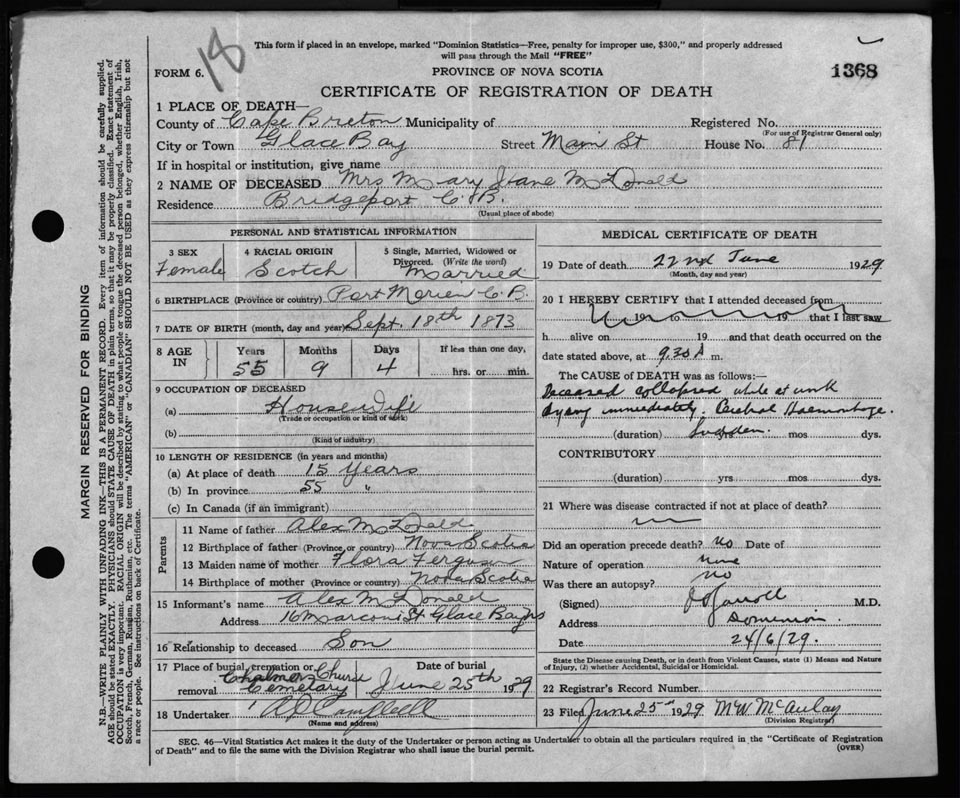 18
This form if placed in an envelope, marked "Dominion Statistics—Free, penalty for improper use, $300," and properly addressed
will pass through the Mail "FREE"
FORM 6.
PROVINCE OF NOVA SCOTIA
1368
CERTIFICATE OF REGISTRATION OF DEATH
1 PLACE OF DEATH—
County of Cape Breton Municipality of Registered No.
(For use of Registrar General only)
City or Town Glace Bay Street Main St House No. 81
If in hospital or institution, give name
2 NAME OF DECEASED Mrs Mary Jane McDonald
Residence Bridgeport C.B.
(Usual place of abode)
PERSONAL AND STATISTICAL INFORMATION
3 SEX 4 RACIAL ORIGIN 5 Single, Married, Widowed or
Divorced. (Write the word)
Female Scotch Married
6 BIRTHPLACE (Province or country) Port Morien C.B.
7 DATE OF BIRTH (month, day and year) Sept. 18th 1873
8 AGE IN Years Months Days If less than one day,
55 9 4 hrs. or min.
9 OCCUPATION OF DECEASED
(a) Housewife
(Trade or occupation or kind of work)
(b)
(Kind of industry)
10 LENGTH OF RESIDENCE (in years and months)
(a) At place of death 15 Years
(b) In province 55 "
(c) In Canada (if an immigrant)
Parents
11 Name of father Alex McDonald
12 Birthplace of father (Province or country) Nova Scotia
13 Maiden name of mother Flora Ferguson
14 Birthplace of mother (Province or country) Nova Scotia
15 Informant's name Alex McDonald
Address 16 Marconi St Glace Bay NS
16 Relationship to deceased Son
17 Place of burial, cremation or Date of burial
removal Chalmers Church
Cemetary June 25th 1929
18 Undertaker A J Campbell
(Name and address)
MEDICAL CERTIFICATE OF DEATH
19 Date of death 22nd June 1929
(Month, day and year)
20 I HEREBY CERTIFY that I attended deceased from
19 to 19 that I last saw
h alive on 19 and that death occurred on the
date stated above, at 9.30 A m.
The CAUSE OF DEATH was as follows:—
Deceased collapsed while at work
dying immediately. Cerebral Haemorhage.
(duration) Sudden mos dys.
CONTRIBUTORY
(duration) yrs mos dys.
21 Where was disease contracted if not at place of death?
Did an operation precede death? No Date of
Nature of operation None
Was there an autopsy? No
(Signed) M.D.
Address Dominion
Date 24/6/29.
State the Disease causing Death, or in death from Violent Causes, state (1) Means and Nature
of Injury, (2) whether Accidental, Suicidal or Homicidal.
22 Registrar's Record Number
23 Filed June 25th 1929 MW McAulay
(Division Registrar)
SEC. 46—Vital Statistics Act makes it the duty of the Undertaker or person acting as Undertaker to obtain all the particulars required in the "Certificate of Registration
of Death" and to file the same with the Division Registrar who shall issue the burial permit.
(OVER)
MARGIN RESERVED FOR BINDING
N.B.—WRITE PLAINLY WITH UNFADING INK—THIS IS A PERMANENT RECORD. Every item of information should be carefully supplied.
AGE should be stated EXACTLY. PHYSICIANS should STATE CAUSE OF DEATH in plain terms, so that it may be properly classified. Exact statement of
OCCUPATION is very important. RACIAL ORIGIN will be described by stating to what people or tongue the deceased person belonged, whether English, Irish,
Scotch, French, German, Russian, Ruthenian, etc. The terms "AMERICAN" or "CANADIAN" SHOULD NOT BE USED as they express citizenship but not
a race or people. See instructions on back of Certificate.